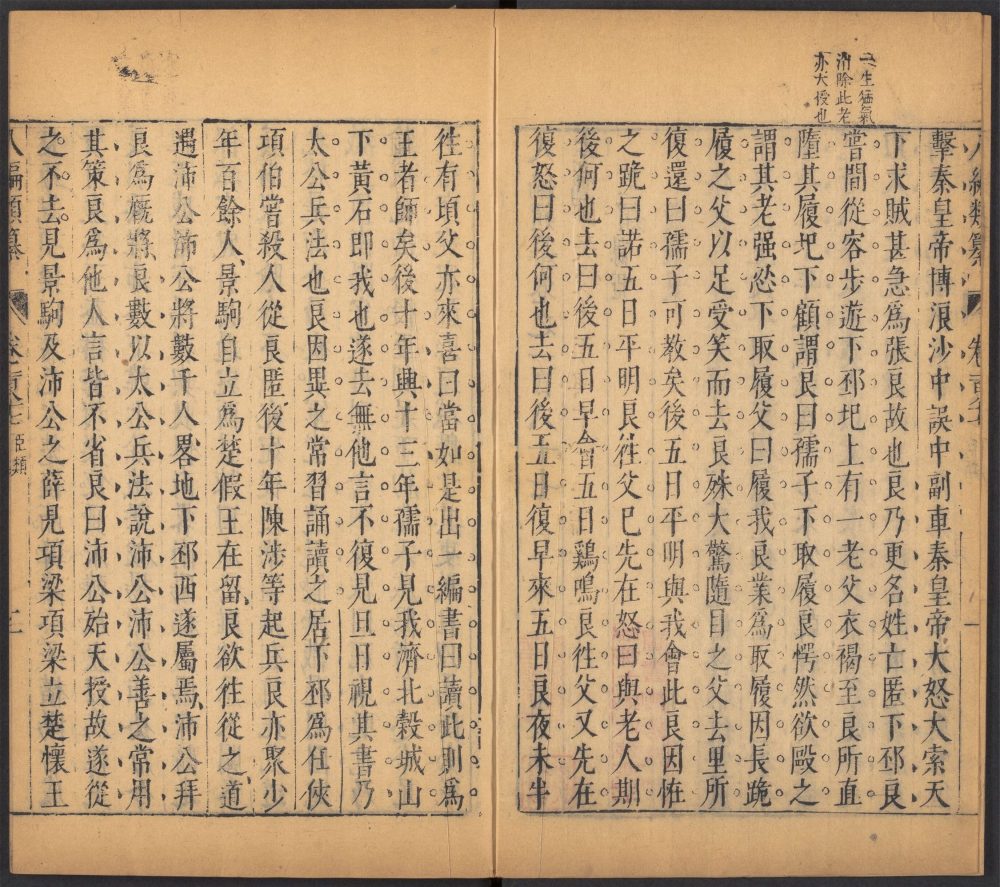 一生猛氣
消除此老
亦大優也
擊秦皇帝博浪沙中誤中副車秦皇帝大怒大索天
下求賊甚急爲張良故也良乃更名姓亡匿下邳良
嘗間從容步遊下邳圯上有一老父衣褐至良所直
墮其履圯下顧謂良曰孺子下取履良愕然欲毆之
謂其老强忍下取履父曰履我良業爲取履因長跪
履之父以足受笑而去良殊大驚隨目之父去里所
復還曰孺子可教矣後五日平明與我會此良因怪
之跪曰諾五日平明良往父已先在怒曰與老人期
後何也去曰後五日早會五日鷄鳴良往父又先在
復怒曰後何也去曰後五日復早來五日良夜未半
往有頃父亦來喜曰當如是出一編書曰讀此則爲
王者師矣後十年興十三年孺子見我濟北穀城山
下黃石即我也遂去無他言不復見旦日視其書乃
太公兵法也良因異之常習誦讀之居下邳爲任俠
項伯嘗殺人從良匿後十年陳涉等起兵良亦聚少
年百餘人景駒自立爲楚假王在留良欲往從之道
遇沛公沛公將數千人畧地下邳西遂屬焉沛公拜
良爲廐將良數以太公兵法說沛公沛公善之常用
其策良爲他人言皆不省良曰沛公始天授故遂從
之不去見景駒及沛公之薛見項梁項梁立楚懷王
八編類纂
臣類